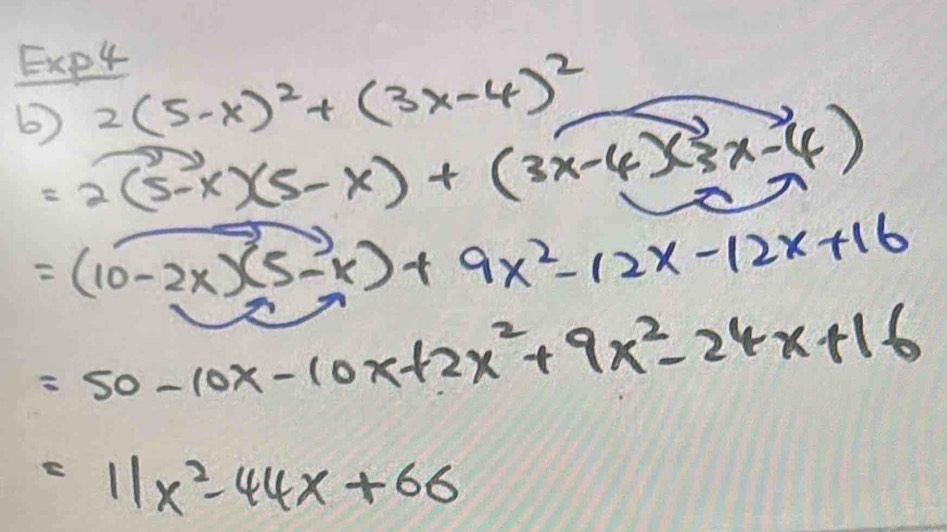 Exp 4
b) 2(5-x)² + (3x-4)²
= 2(5-x)(5-x) + (3x-4)(3x-4)
= (10-2x)(5-x) + 9x²-12x-12x+16
= 50-10x-10x+2x²+9x²-24x+16
= 11x²-44x+66